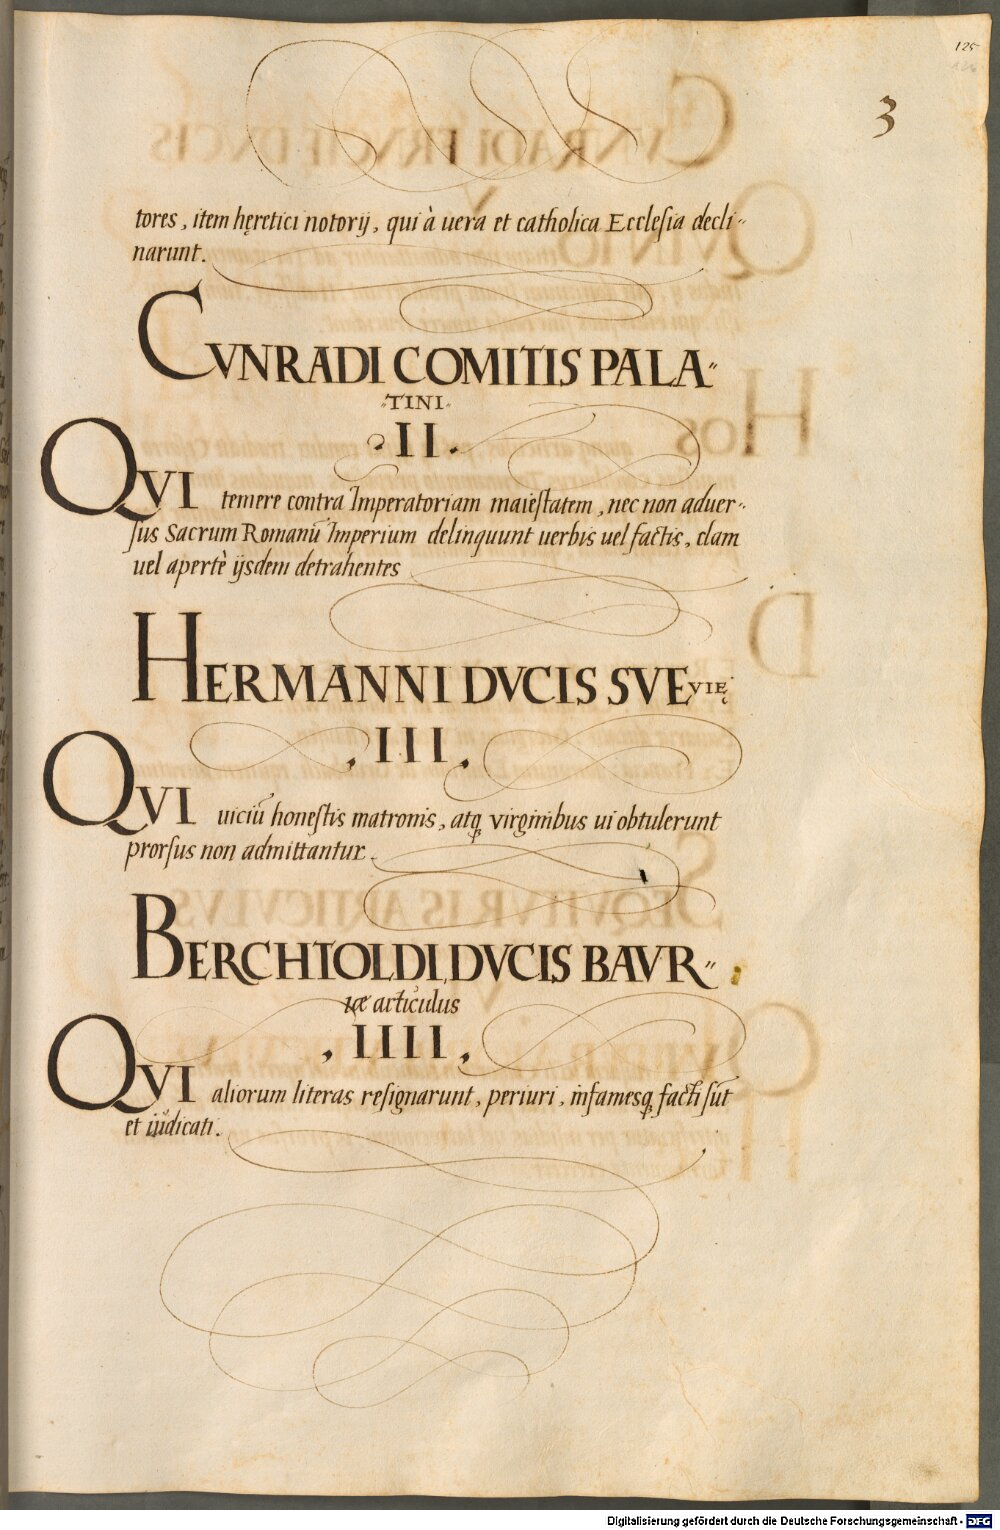 125
3
tores, item hęretici notorij, qui à uera et catholica Ecclesia decli"
narunt.
CVNRADI COMITIS PALA"
"TINI"
.II.
QVI temere contra Imperatoriam maiestatem, nec non aduer"
sus Sacrum Romanū Imperium delinquunt uerbis uel factis, clam
uel apertè ijsdem detrahentes
HERMANNI DVCIS SVEVIĘ
.III.
QVI uiciū honestis matronis, atq̨ virginibus ui obtulerunt
prorsus non admittantur.
BERCHTOLDI DVCIS BAVR"
iæ articulus
.IIII.
QVI aliorum literas resignarunt, periuri, infamesq̨ facti sūt
et iudicati.
Digitalisierung gefördert durch die Deutsche Forschungsgemeinschaft - DFG